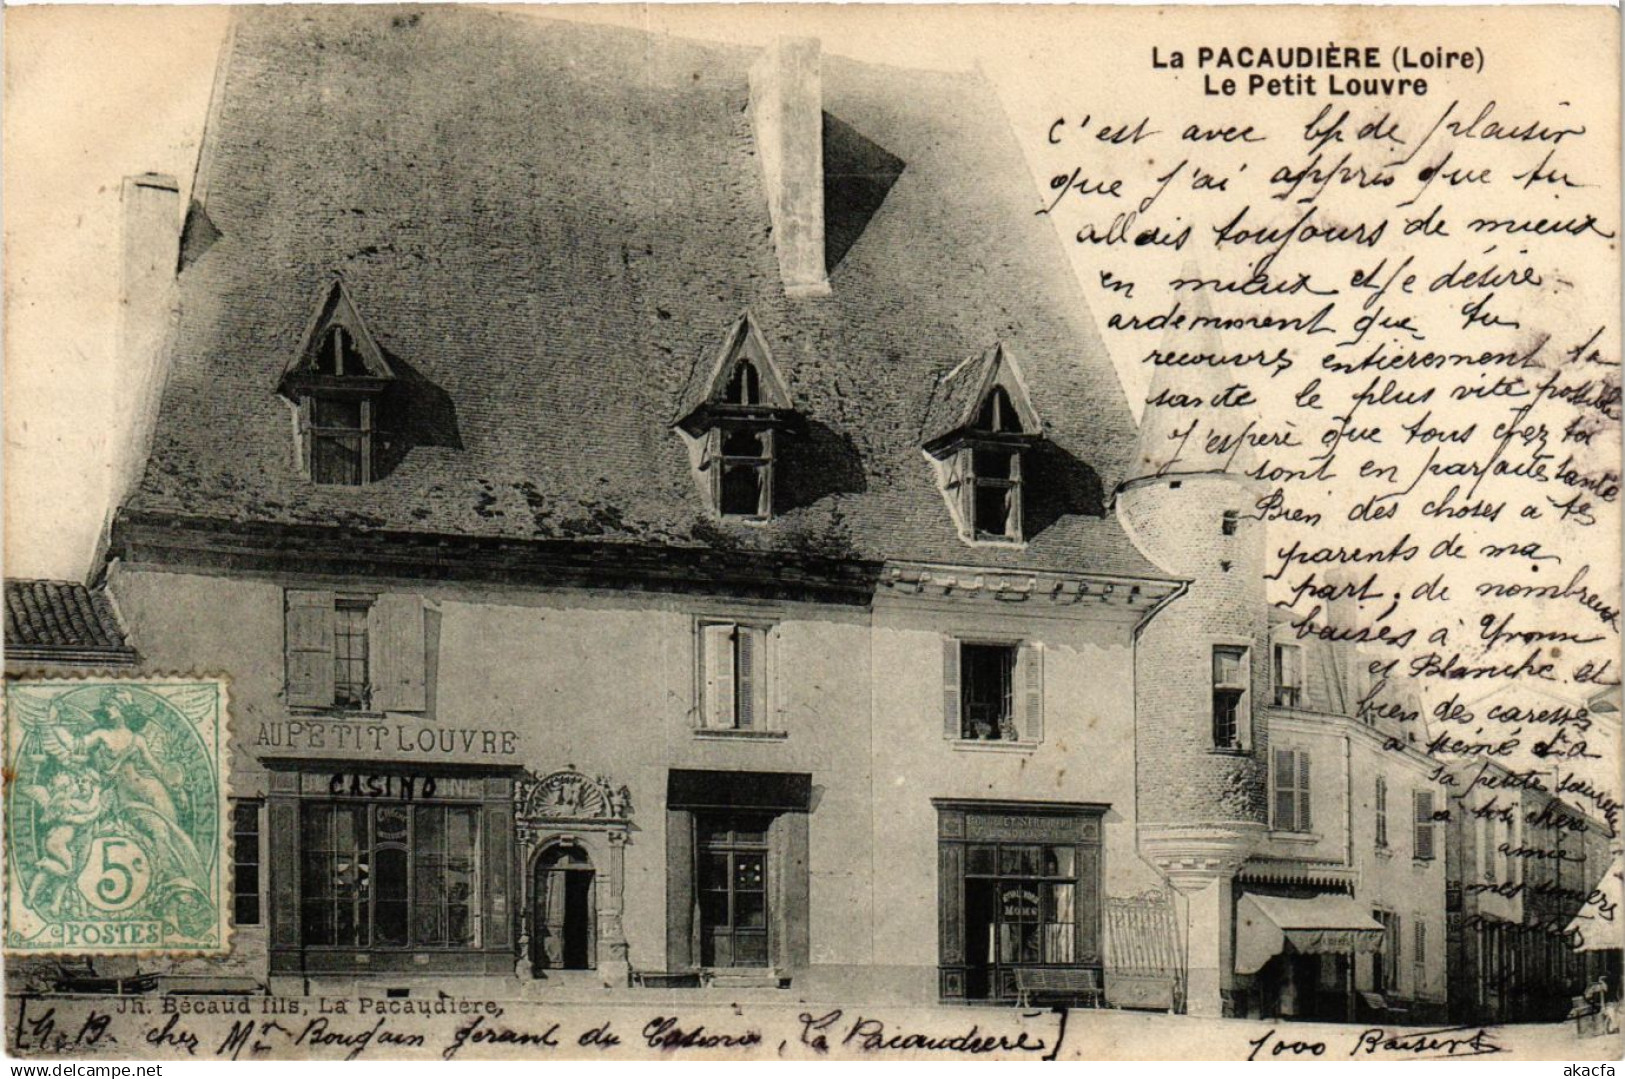 La PACAUDIÈRE (Loire)
Le Petit Louvre
c'est avec bp de plaisir
que j'ai appris que tu
allais toujours de mieux
en mieux et je désire
ardemment que tu
recouvres entièrement ta
santé le plus vite possible
J'espère que tous chez toi
sont en parfaite santé
Bien des choses à tes
parents de ma
part, de nombreux
baisers à Yvonne
et Blanche et
bien des caresses
à Mémé et à
sa petite soeurette
à toi chère
amie
mes
1000 Baisers
AU PETIT LOUVRE
CASINO
POSTES
5c
Jh. Bécaud fils, La Pacaudière,
[N.B. chez Mr Boujain gerant du Casino, La Pacaudière]
akacfa
akacfa.com